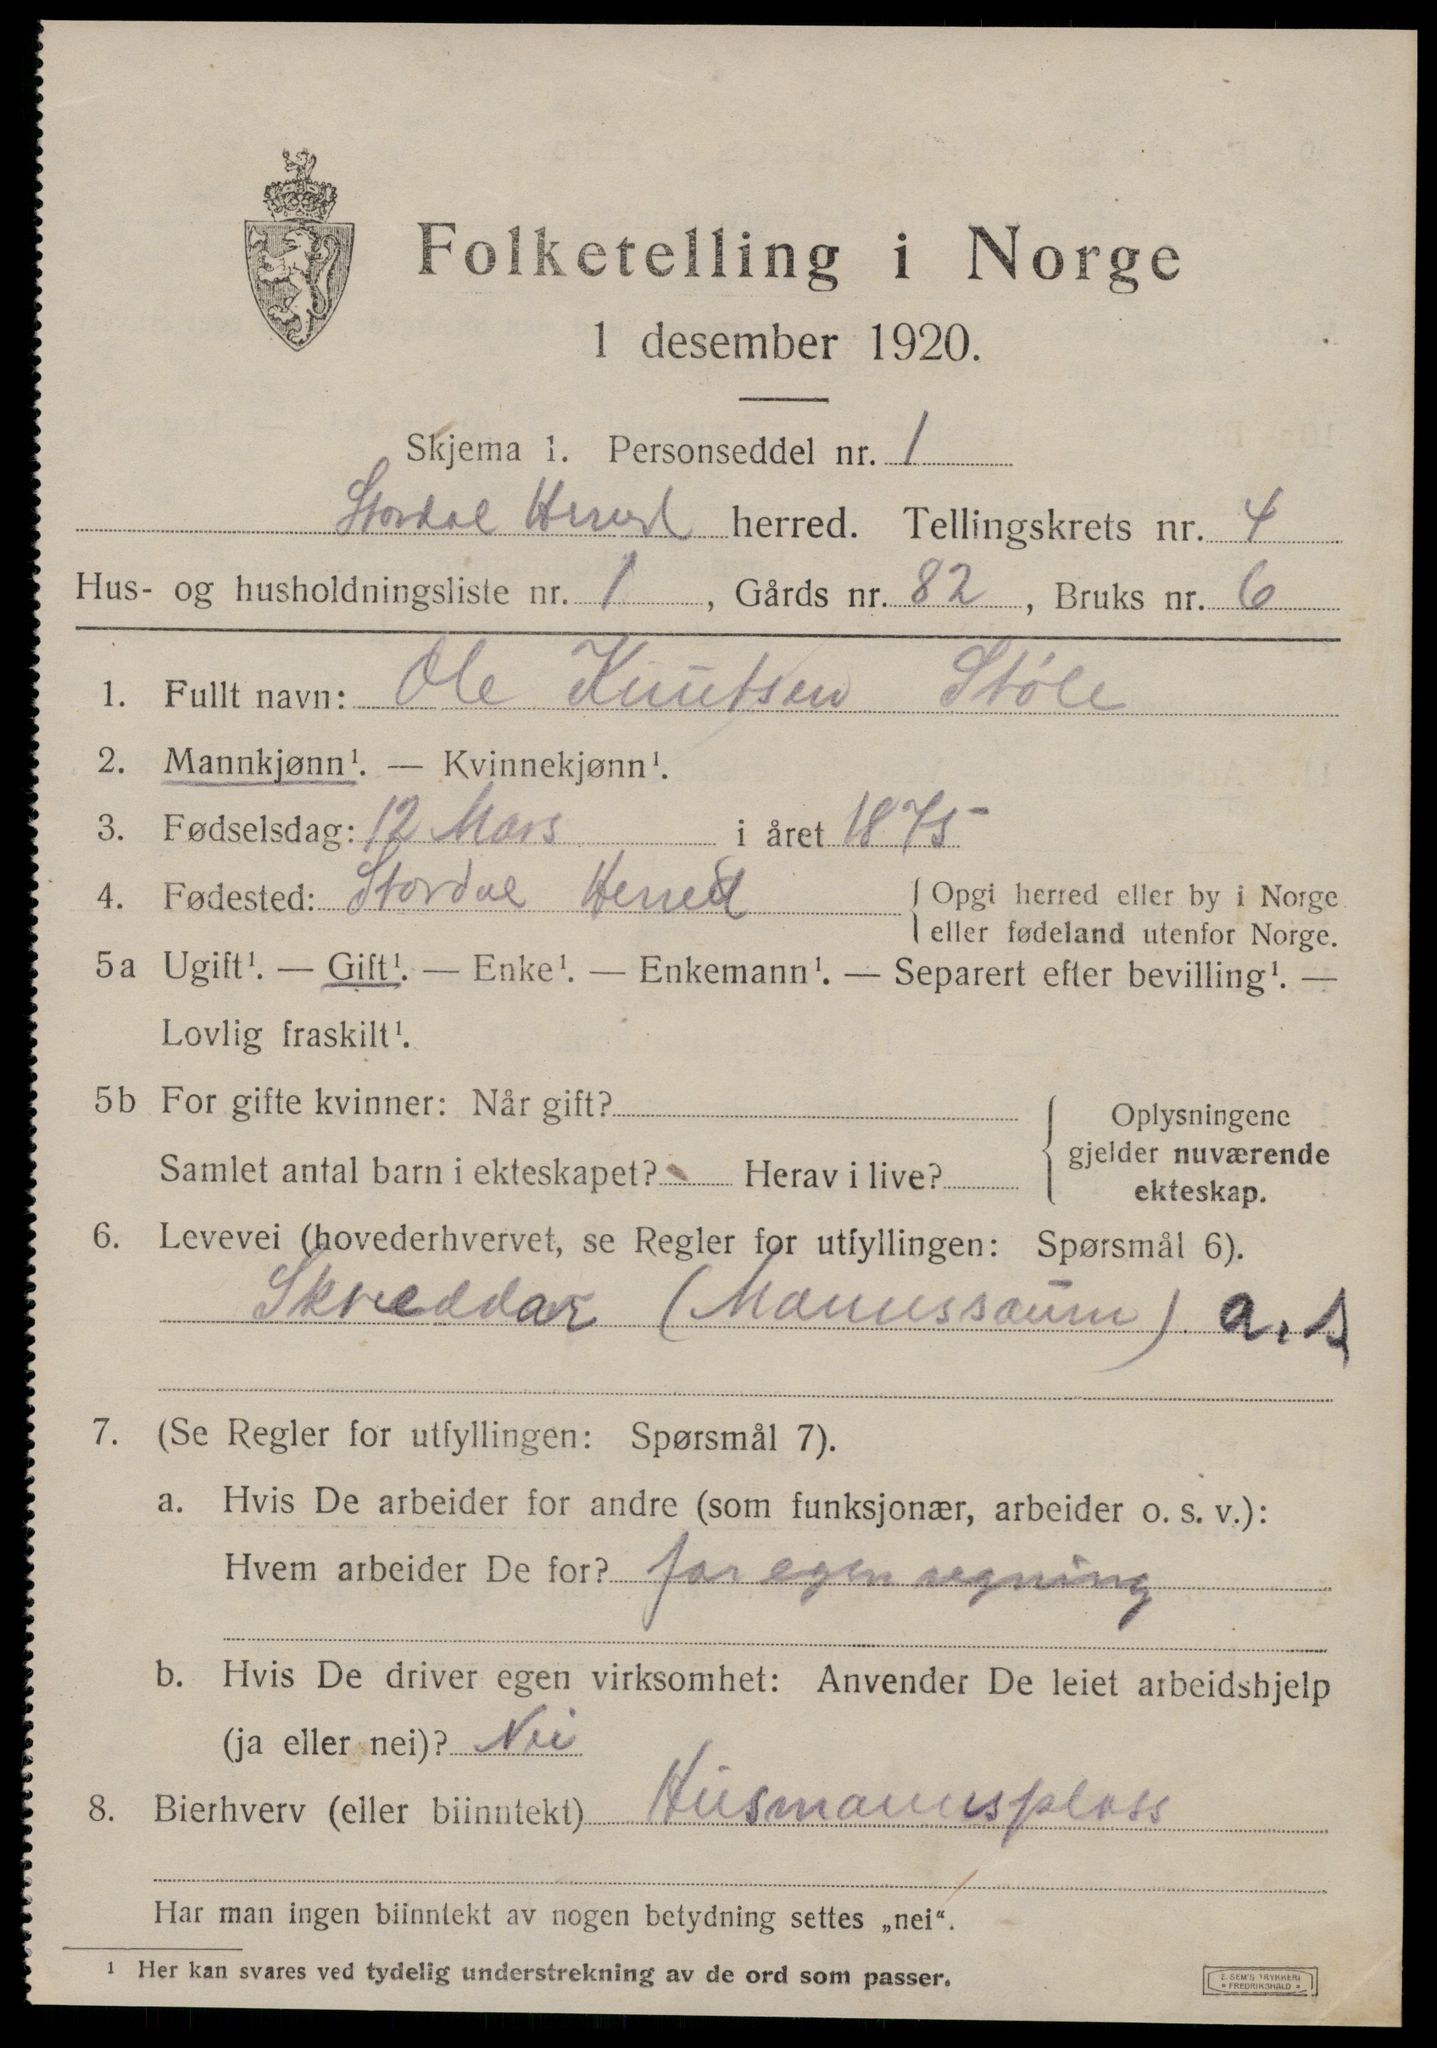 Folketelling i Norge
1 desember 1920.
Skjema 1. Personseddel nr. 1
Stordal Herred herred. Tellingskrets nr. 4
Hus- og husholdningsliste nr. 1, Gårds nr. 82, Bruks nr. 6
1. Fullt navn: Ole Knutsen Støle
2. Mannkjønn¹. — Kvinnekjønn¹.
3. Fødselsdag: 12 Mars i året 1875
4. Fødested: Stordal Herred { Opgi herred eller by i Norge
eller fødeland utenfor Norge.
5a Ugift¹. — Gift¹. — Enke¹. — Enkemann¹. — Separert efter bevilling¹. —
Lovlig fraskilt¹.
5b For gifte kvinner: Når gift?
Samlet antal barn i ekteskapet? Herav i live?
Oplysningene
gjelder nuværende
ekteskap.
6. Levevei (hovederhvervet, se Regler for utfyllingen: Spørsmål 6).
Skreddar (Mannssaum) a. s
7. (Se Regler for utfyllingen: Spørsmål 7).
a. Hvis De arbeider for andre (som funksjonær, arbeider o. s. v.):
Hvem arbeider De for? for egen regning
b. Hvis De driver egen virksomhet: Anvender De leiet arbeidshjelp
(ja eller nei)? Nei
8. Bierhverv (eller biinntekt) Husmannsplass
Har man ingen biinntekt av nogen betydning settes „nei“.
¹ Her kan svares ved tydelig understrekning av de ord som passer.
E. SEM'S TRYKKERI
FREDRIKSHALD